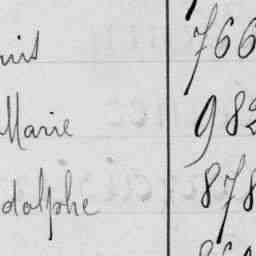 766
Marie 982
dolphe 878